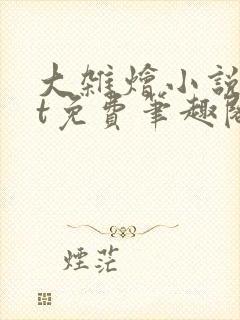 大雜燴小說
t免費筆趣閣
煙茫